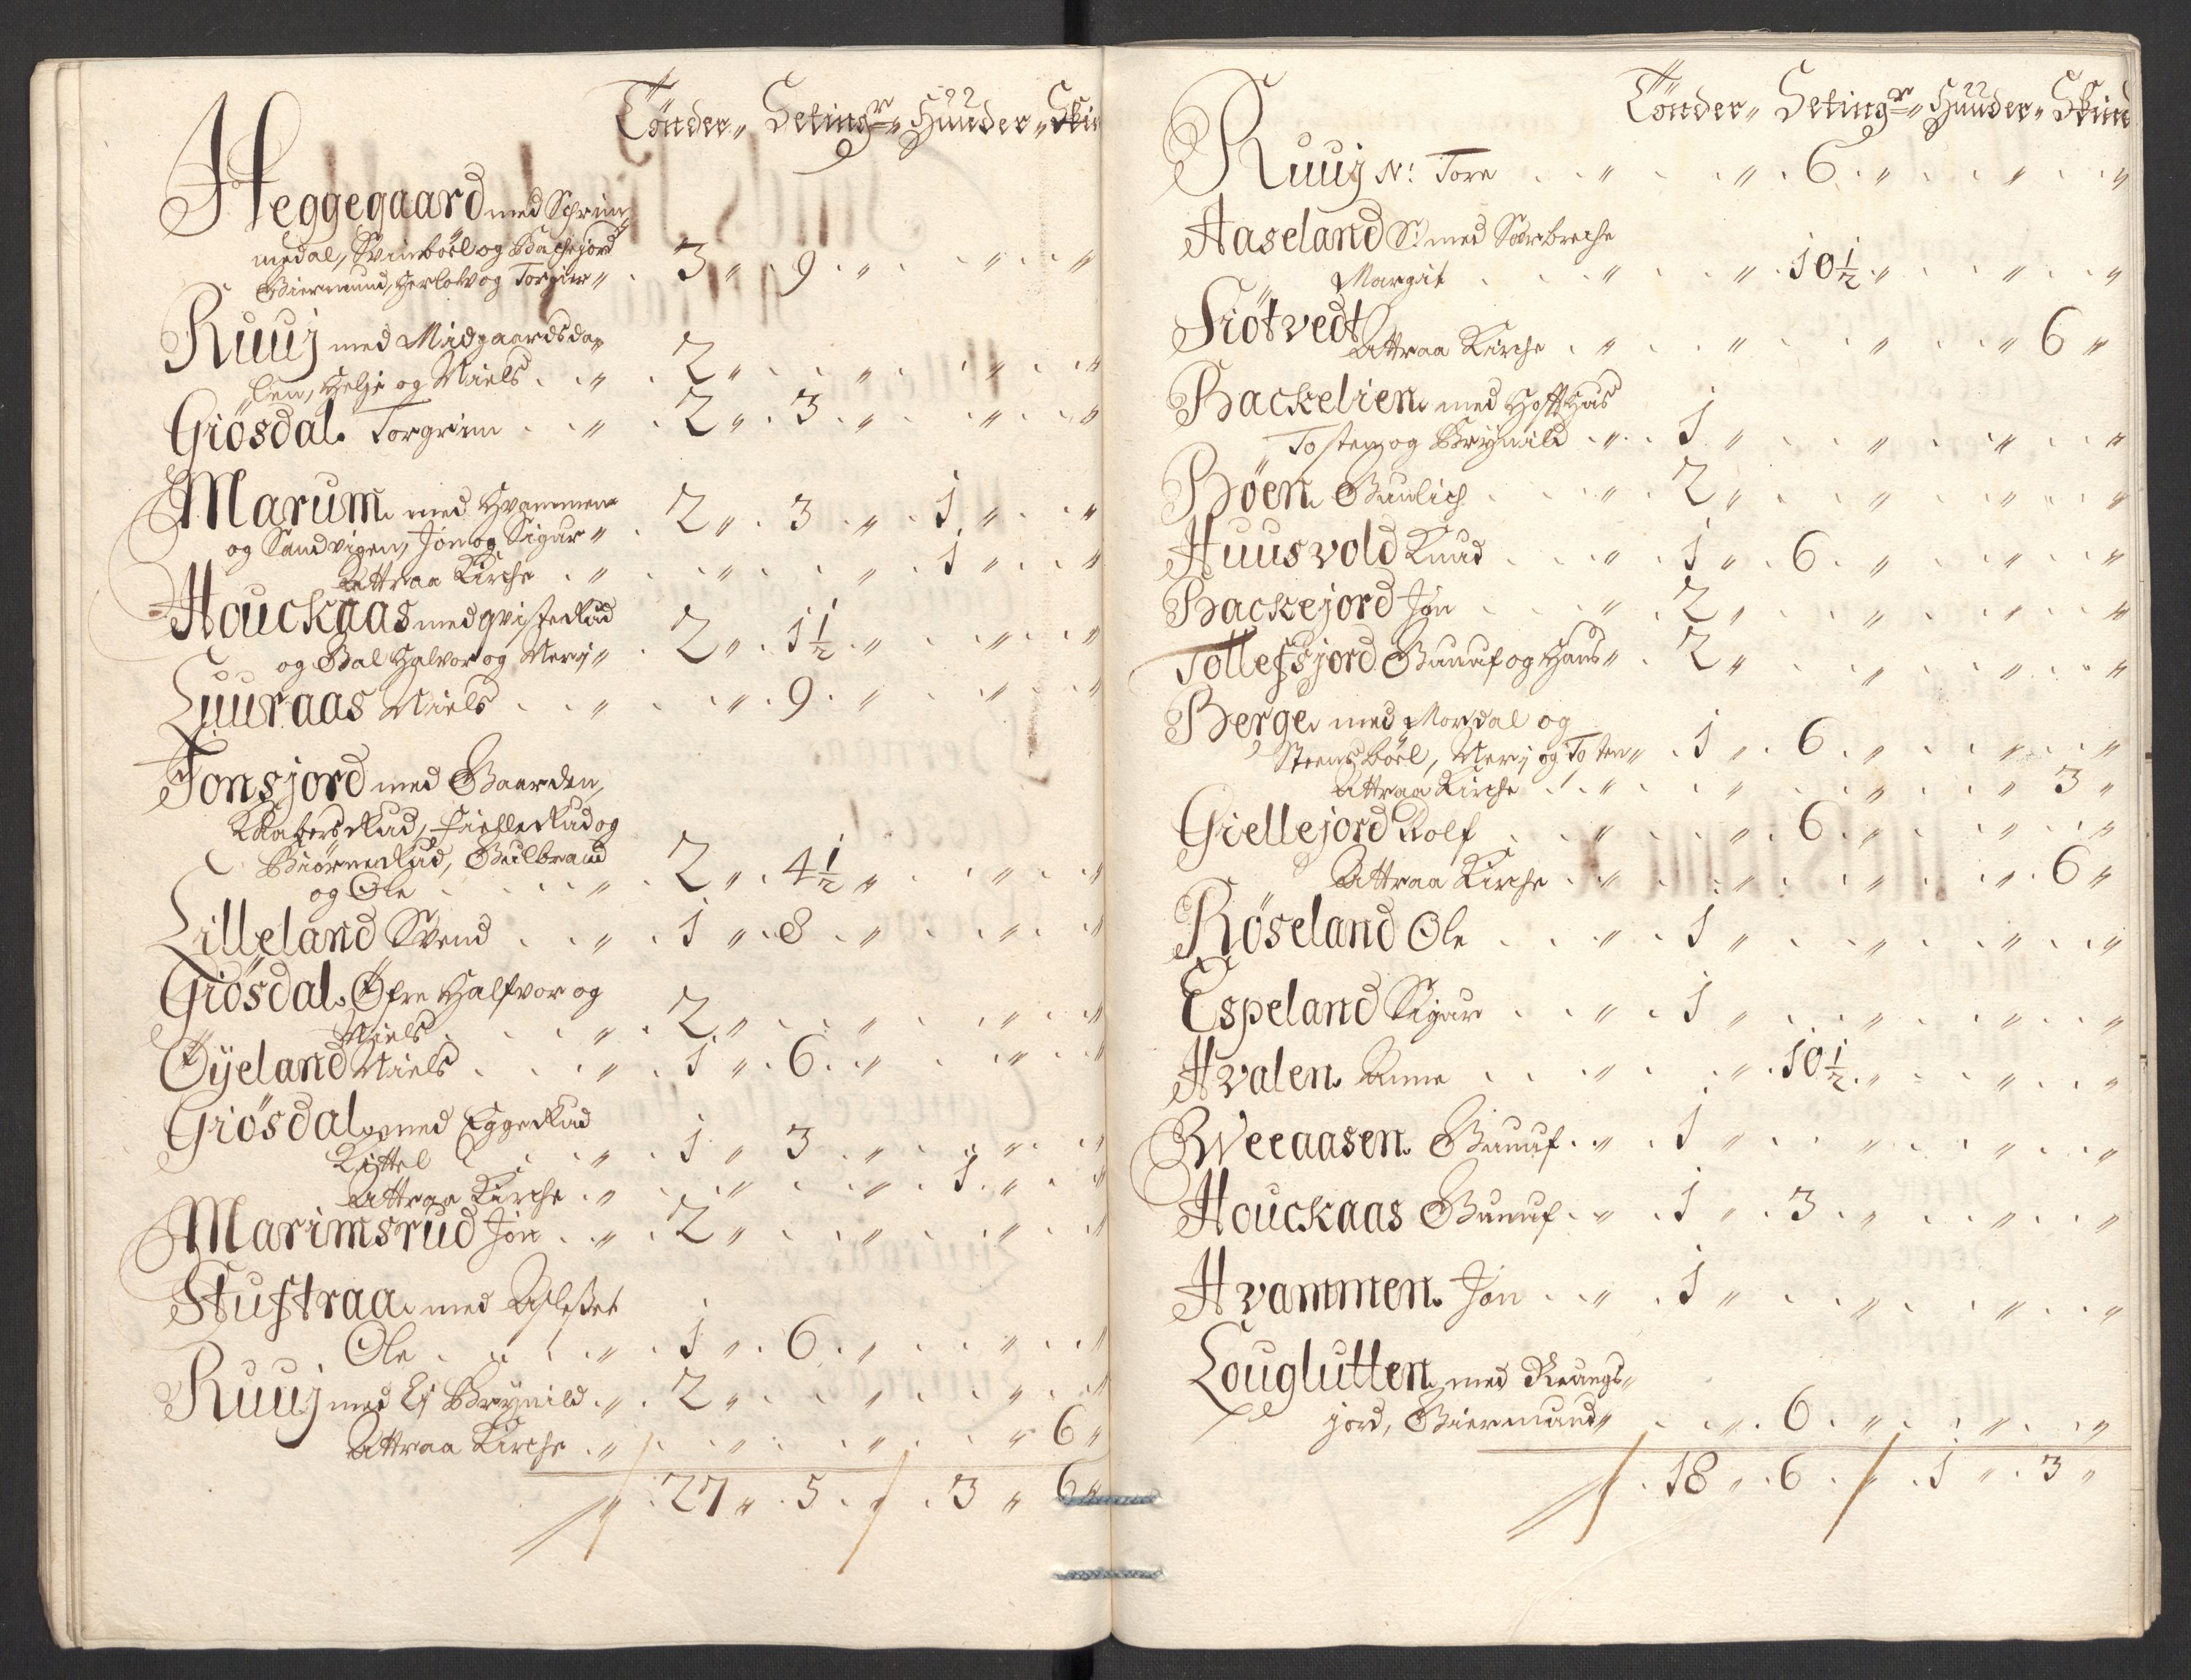 Tønder „ Setingr „ Huuder „ Skin
Heggegaard med Schrim„
medal, Svinboel og Bachejord
Biermund, Herlow og Torgier „ . 3 „ . 9 . „ . . „ . . „
Ruuj med Midgaardsda„
len, Helje og Niels . . „ . 2 „ . . „ . . „ . . „
Giösdal. Torgrim . . „ . 2 „ . 3 . „ . . „ . . „
Marum. med Hvammen
og Sandvigen, Jon og Sigur „ . 2 „ . 3 . „ . 1 „ . . „
Attraa Kirche . „ . . „ . . „ . 1 „ . . „
Houckaas med Qvisterud
og Bal Halvor og Nerij „ . 2 „ . 1½ „ . . „ . . „
Luuraas Niels . . „ . . „ . 9 . „ . . „ . . „
Tonsjord med Gaarden,
Biörnerud, Gulbrand
og Ole . . . „ . 2 „ . 4½ „ . . „ . . „
Lilleland Svend . . „ . 1 „ . 8 . „ . . „ . . „
Giösdal. Øfre Halfvor og
Niels . . . „ . 2 „ . . „ . . „ . . „
Øÿeland Niels . . . „ . 1 „ . 6 . „ . . „ . . „
Giösdal med Eggerud
Kittel . . . „ . 1 „ . 3 . „ . . „ . . „
Attraa Kirche . „ . . „ . . „ . 1 . „ . . „
Marimsrud Jon . . „ . 2 „ . . „ . . „ . . „
Stuftraa. med
Ole . . . . „ . 1 „ . 6 . „ . . „ . . „
Ruuj med Ej Brynild . „ . 2 „ . . „ . . „ . . „
Attraa Kirche . „ . . „ . . „ . . „ 6 „
„ . 27 „ . 5 . „ . 3 „ 6 „
Tønder „ Setingr „ Huuder „ Skind
Ruuj N: Tore . . „ . . „ . 6 . „ . . „ . . „
Haseland S: med Sørbreche
Margit . . . „ . . „ . 10½ „ . . „ . . „
Siötvedt
Attraa Kirche . „ . . „ . . „ . . „ 6 „
Backelien. med Hofthus
Tosten og Brynild . „ . 1 „ . . „ . . „ . . „
Böen. Gunlich . . . „ . 2 „ . . „ . . „ . . „
Huusvold Knud . . . „ . 1 „ . 6 . „ . . „ . . „
Backejord Jon . . . „ . 2 „ . . „ . . „ . . „
Tollefsjord Gunuf og Hans „ . 2 „ . . „ . . „ . . „
Berge. med Mordal og
Steensboel, Nerij og Tosten „ . 1 „ . 6 . „ . . „ . . „
Attraa Kirche . . „ . . „ . . „ . . „ 3 „
Giellejord Rolf . . „ . . „ . 6 . „ . . „ . . „
Attraa Kirche . „ . . „ . . „ . . „ . 6 „
Röseland Ole . . . „ . 1 „ . . „ . . „ . . „
Espeland Sigur . . „ . 1 „ . . „ . . „ . . „
Hvalen. Anne . . . „ . . „ . 10½ „ . . „ . . „
Weeaasen. Gunuf . „ . 1 „ . . „ . . „ . . „
Houckaas Gunuf . „ . 1 „ . 3 . „ . . „ . . „
Hvammen. Jon . . „ . 1 „ . . „ . . „ . . „
Louglutten. med Reangs„
jord, Biermund „ . . „ . 6 . „ . . „ . . „
„ . 18 „ . 6 . „ . 1 „ . 3 „